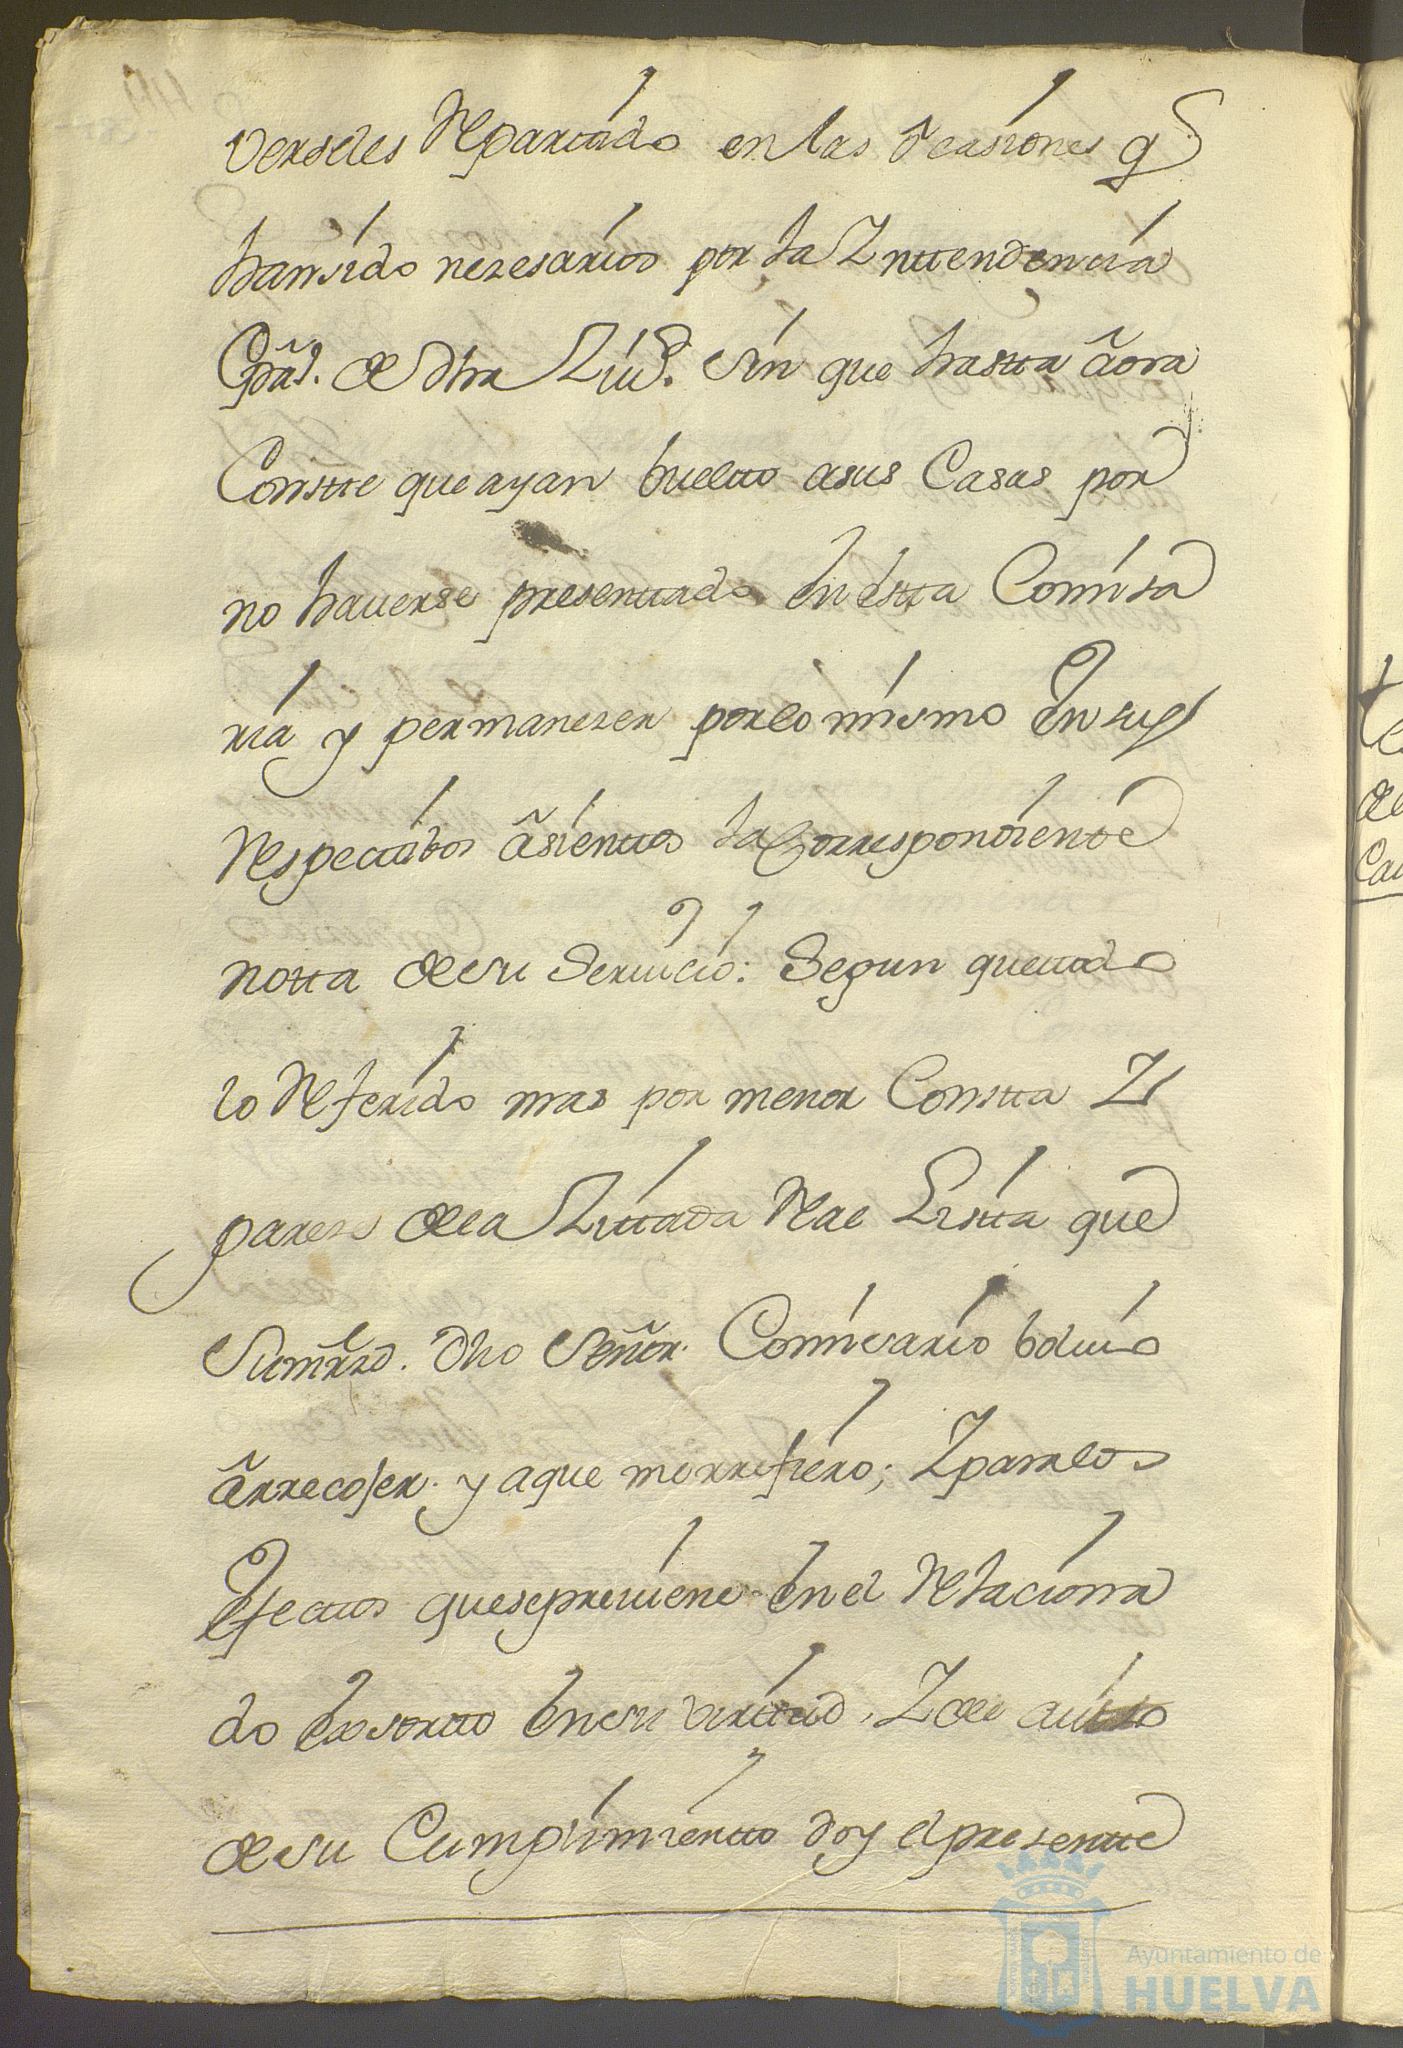 verseles Repartido en las ocasiones q
han sido nezesarios por la Inttendencia
Gral. de dha Ziud. sin que hastta aora
Constte que ayan bueltto a sus Casas por
no hauerse presenttado en estta Comisa
ria y permanezer por lo mismo En sus
Respecttibos asienttos la Correspondientte
notta de su Seruicio: Segun que ttodo
lo Referido mas por menor Constta I
pareze de la Zittada Real Listta que
dho Señor Comisario boluio
a rrecojer y a que me rrefiero; I para los
Efecttos que se preuiene en el Relaciona
do Exsortto En su birttud, I del autto
de su Cumplimientto doy el presentte
Ayuntamiento de
HUELVA